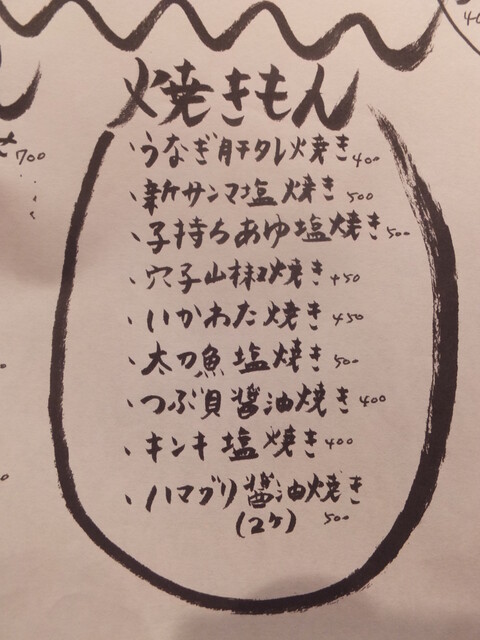 焼きもん
、うなぎ肝タレ焼き400
、新サンマ塩焼き500
、子持ちあゆ塩焼き500
、穴子山椒焼き450
、いかわた焼き450
、太刀魚塩焼き500
、つぶ貝醤油焼き400
、キンキ塩焼き400
、ハマグリ醤油焼き
(2ケ) 500
700